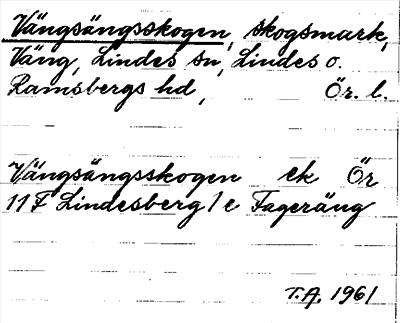 Vängsängsskogen, skogsmark,
Väng, Lindes sn, Lindes o.
Ramsbergs hd, Ör. l.
Vängsängsskogen ek Ör
11F Lindesberg/c Fageräng
T.A. 1961